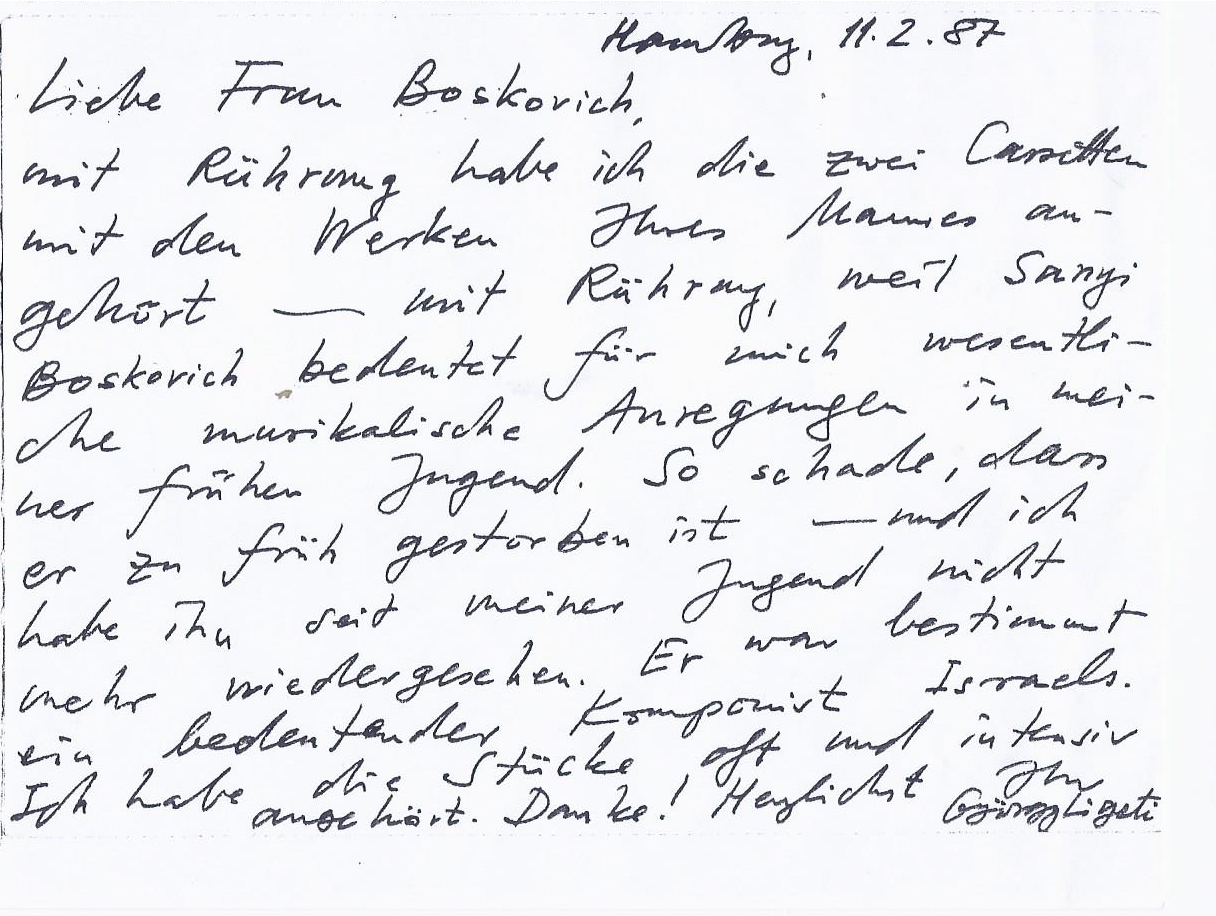 Hamburg, 11.2.87
Liebe Frau Boskovich,
mit Rührung habe ich die zwei Cassetten
mit den Werken Ihres Mannes an-
gehört — mit Rührung, weil Sanyi
Boskovich bedeutet für mich wesentli-
che musikalische Anregungen in mei-
ner frühen Jugend. So schade, dass
er zu früh gestorben ist — und ich
habe ihn seit meiner Jugend nicht
mehr wiedergesehen. Er war bestimmt
ein bedeutender Komponist Israels.
Ich habe die Stücke oft und intensiv
angehört. Danke! Herzlichst Ihr
György Ligeti